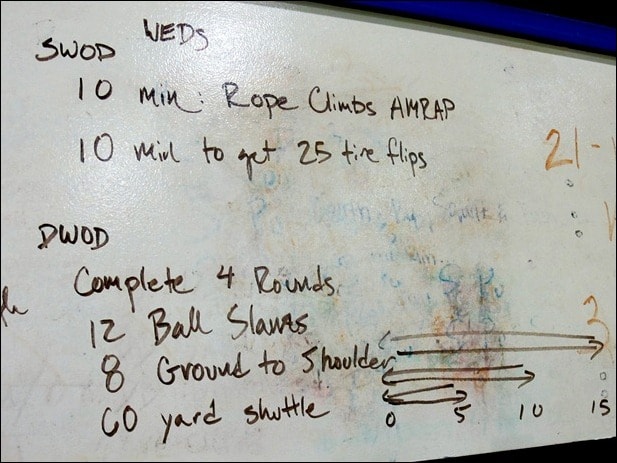 WEDS
SWOD
10 min: Rope Climbs AMRAP
10 min to get 25 tire flips
21-
DWOD
Complete 4 Rounds.
12 Ball Slams
8 Ground to Shoulder
60 yard shuttle
0 5 10 15
3